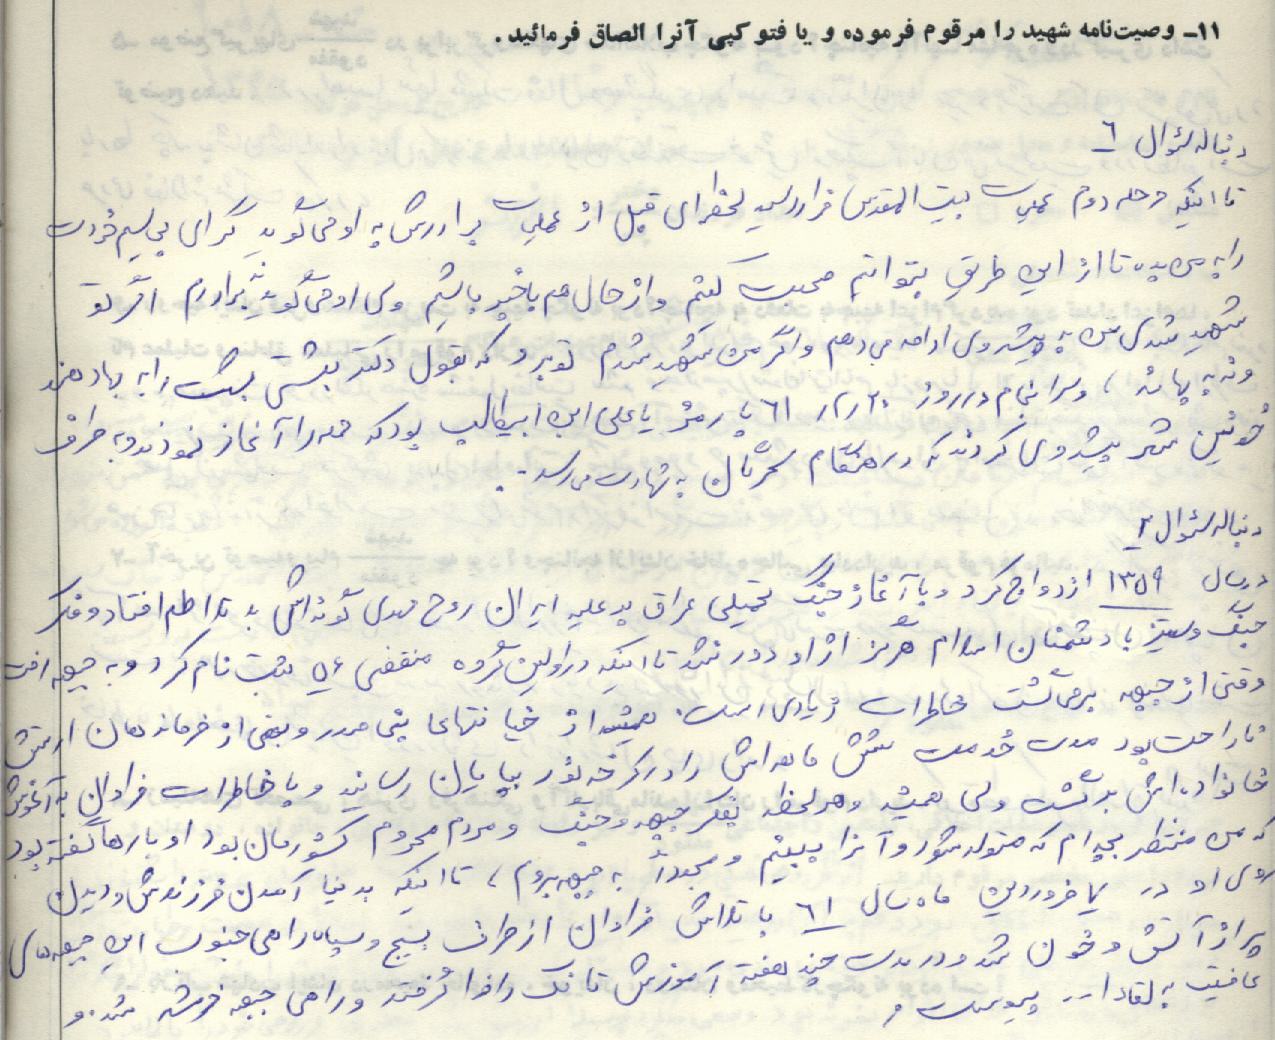 ۱۱ـ وصیت‌نامه شهید را مرقوم فرموده و یا فتوکپی آنرا الصاق فرمائید.
دنباله سئوال ٦
تا اینکه مرحله دوم عملیات بیت المقدس فرا رسید لحظه‌ای قبل از عملیات برادرش به او می‌گوید گرای بی‌سیم خودت
را به من بده تا از این طریق بتوانم صحبت کنیم و از حال هم باخبر باشیم ولی او می‌گوید نه برادرم اگر تو
شهید شدی من به پیشروی ادامه می‌دهم و اگر من شهید شدم تو برو که بقول دکتر بهشتی بهشت را به بها دهند
و نه به بهانه، و سرانجام در روز ۲/۲۰/ ٦۱ با رمز یا علی ابن ابیطالب بود که حمله را آغاز نمودند و به طرف
خونین شهر پیشروی کردند که در هنگام سحرگاهان به شهادت می‌رسد.
دنباله سئوال ۲
در سال ۱۳۵۹ ازدواج کرد و با آغاز جنگ تحمیلی عراق بر علیه ایران روح مهدی گونه‌اش به تلاطم افتاد و فکر
جنگ و ستیز با دشمنان اسلام هرگز از او دور نشد تا اینکه در اولین گروه منقضی ۵٦ ثبت نام کرد و به جبهه رفت
وقتی از جبهه برمی‌گشت خاطرات زیادی داشت. همیشه از خیانتهای بنی صدر و بعضی از فرماندهان ارتش
ناراحت بود مدت خدمت شش ماهه‌اش را در کرخه نور بپایان رسانید و با خاطرات فراوان به آغوش
خانواده‌اش برگشت ولی همیشه و هر لحظه بفکر جبهه و جنگ و مردم محروم کشورمان بود او بارها گفته بود
که من منتظر بچه‌ام که متولد شود و آنرا ببینم و مجدداً به جبهه بروم، تا اینکه بدنیا آمدن فرزندش و دیدن
روی او در فروردین ماه سال ٦۱ با تلاش فراوان از طرف بسیج و سپاه راهی جنوب این جبهه‌های
پر از آتش و خون شد و در مدت چند هفته آموزش تانک را فرا گرفتند و راهی جبهه خرمشهر شد. و
عاقبت به لقاء ا... پیوست و